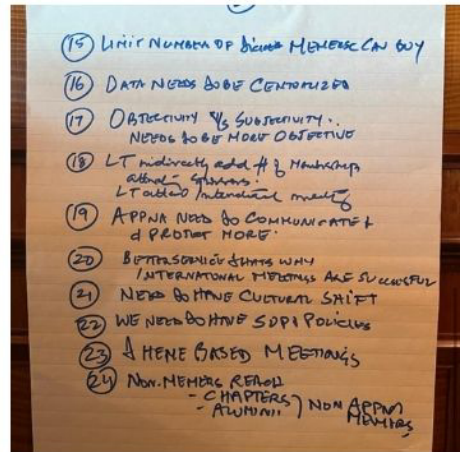 15 LIMIT NUMBER OF MEMERSC CAN BUY
16 DATA NEEDS TO BE CENTRALIZED
17 OBJECTIVITY V/S SUBJECTIVITY..
NEEDS TO BE MORE OBJECTIVE
18 LT indirectly add # of Memberships
LT attend international meeting
19 APPNA NEED TO COMMUNICATE &
PROTECT MORE.
20 BETTER SERVICE THATS WHY
INTERNATIONAL MEETINGS ARE SUCCESSFUL
21 NEED TO HAVE CULTURAL SHIFT
22 WE NEED TO HAVE SOP & POLICIES
23 THEME BASED MEETINGS
24 NON-MEMERS REACH
- CHAPTERS
- ALUMINII } NON APPNA
MEMBERS